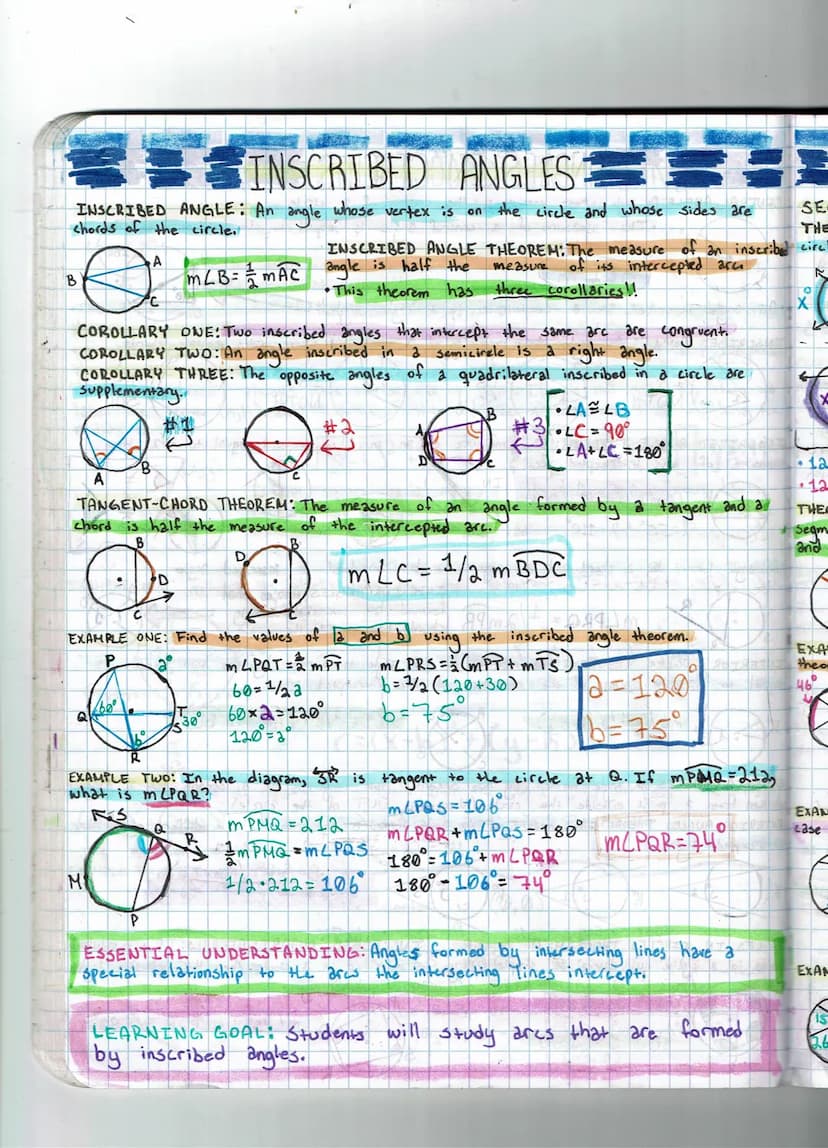 INSCRIBED ANGLES
INSCRIBED ANGLE: An angle whose vertex is on the circle and whose sides are
chords of the circle.
B
A
C
m∠B = 1/2 mAC
INSCRIBED ANGLE THEOREM: The measure of an inscribed
angle is half the measure of its intercepted arc.
• This theorem has three corollaries!!
COROLLARY ONE: Two inscribed angles that intercept the same arc are congruent.
COROLLARY TWO: An angle inscribed in a semicircle is a right angle.
COROLLARY THREE: The opposite angles of a quadrilateral inscribed in a circle are
supplementary.
A
B
#1
C
#2
A
B
D
C
#3
• ∠A ≅ ∠B
• ∠C = 90°
• ∠A + ∠C = 180°
TANGENT-CHORD THEOREM: The measure of an angle formed by a tangent and a
chord is half the measure of the intercepted arc.
B
D
C
D
B
C
m∠C = 1/2 mBDC
EXAMPLE ONE: Find the values of a and b using the inscribed angle theorem.
P
a°
Q
60°
T
30°
S
b°
R
m∠PQT = 1/2 mPT
60 = 1/2 a
60 x 2 = 120°
120° = a°
m∠PRS = 1/2 (mPT + mTS)
b = 1/2 (120+30)
b = 75°
a = 120°
b = 75°
EXAMPLE TWO: In the diagram, SR is tangent to the circle at Q. If mPMQ = 212,
what is m∠PQR?
S
Q
R
M
P
mPMQ = 212
1/2 mPMQ = m∠PQS
1/2 • 212 = 106°
m∠PQS = 106°
m∠PQR + m∠PQS = 180°
180° = 106° + m∠PQR
180° - 106° = 74°
m∠PQR = 74°
ESSENTIAL UNDERSTANDING: Angles formed by intersecting lines have a
special relationship to the arcs the intersecting lines intercept.
LEARNING GOAL: Students will study arcs that are formed
by inscribed angles.
SE
THE
circ
X°
• 12
• 12
THE
segm
and
EXA
theo
46°
EXAM
case
EXAM